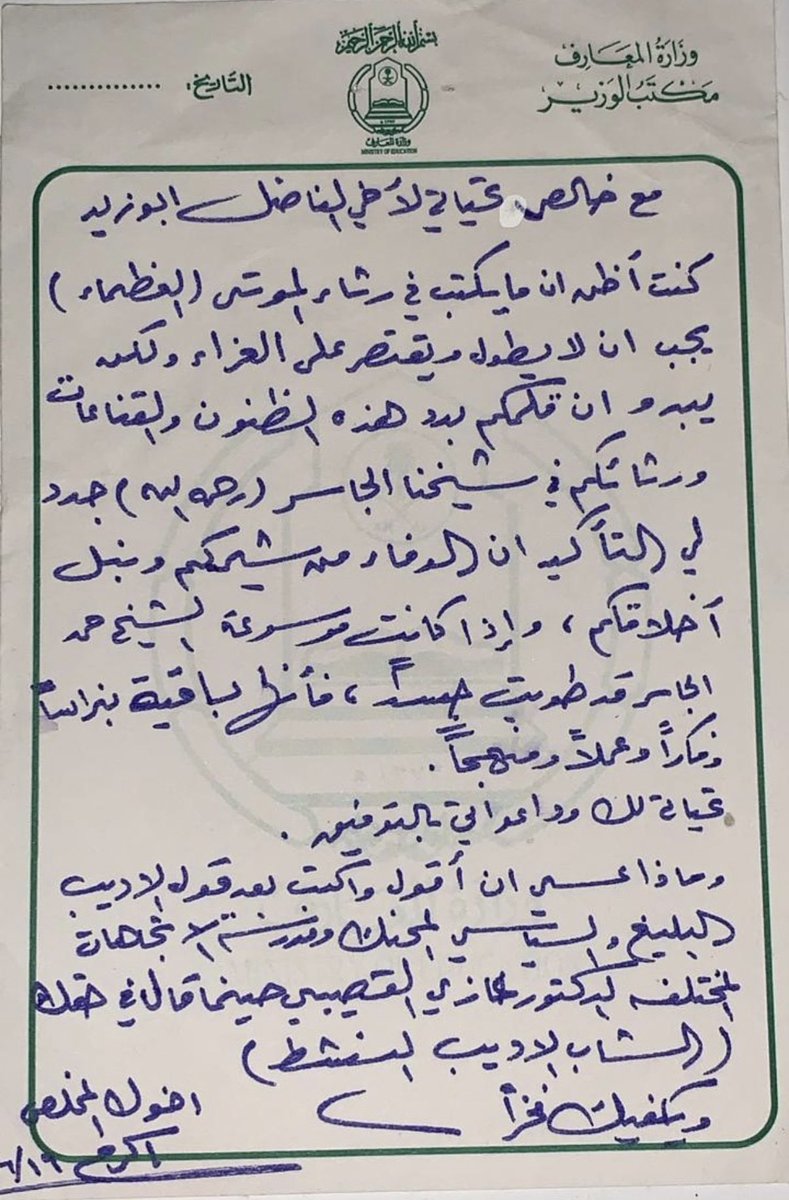 وزارة المعارف
مكتب الوزير
بسم الله الرحمن الرحيم
وزارة المعارف
MINISTRY OF EDUCATION
التاريخ: ..............
مع خالص تحياتي لأخي الفاضل ابو زيد
كنت أظن ان ما يكتب في رثاء الموتى (العظماء)
يجب ان لا يطول ويقتصر على العزاء ولكن
يبدو ان قلمكم بدد هذه الظنون والقناعات
ورثائكم في شيخنا الجاسر (رحمه الله) جدد
لي التأكيد ان الوفاء من شيمكم ونبل
أخلاقكم، وإذا كانت موسوعة الشيخ حمد
الجاسر قد طويت جسداً، فأنها لباقية نبراساً
وفكراً وعملاً ومنهجاً.
تحياتي لك ودعواتي بالتوفيق.
وماذا عسى ان أقول واكتب بعد قول الاديب
البليغ والسياسي المحنك ومدرسة الاتجاهات
المختلفه الدكتور غازي القصيبي حينما قال في حقك
(الشاب الاديب النشط)
ويكفيك فخراً
اخوك المخلص